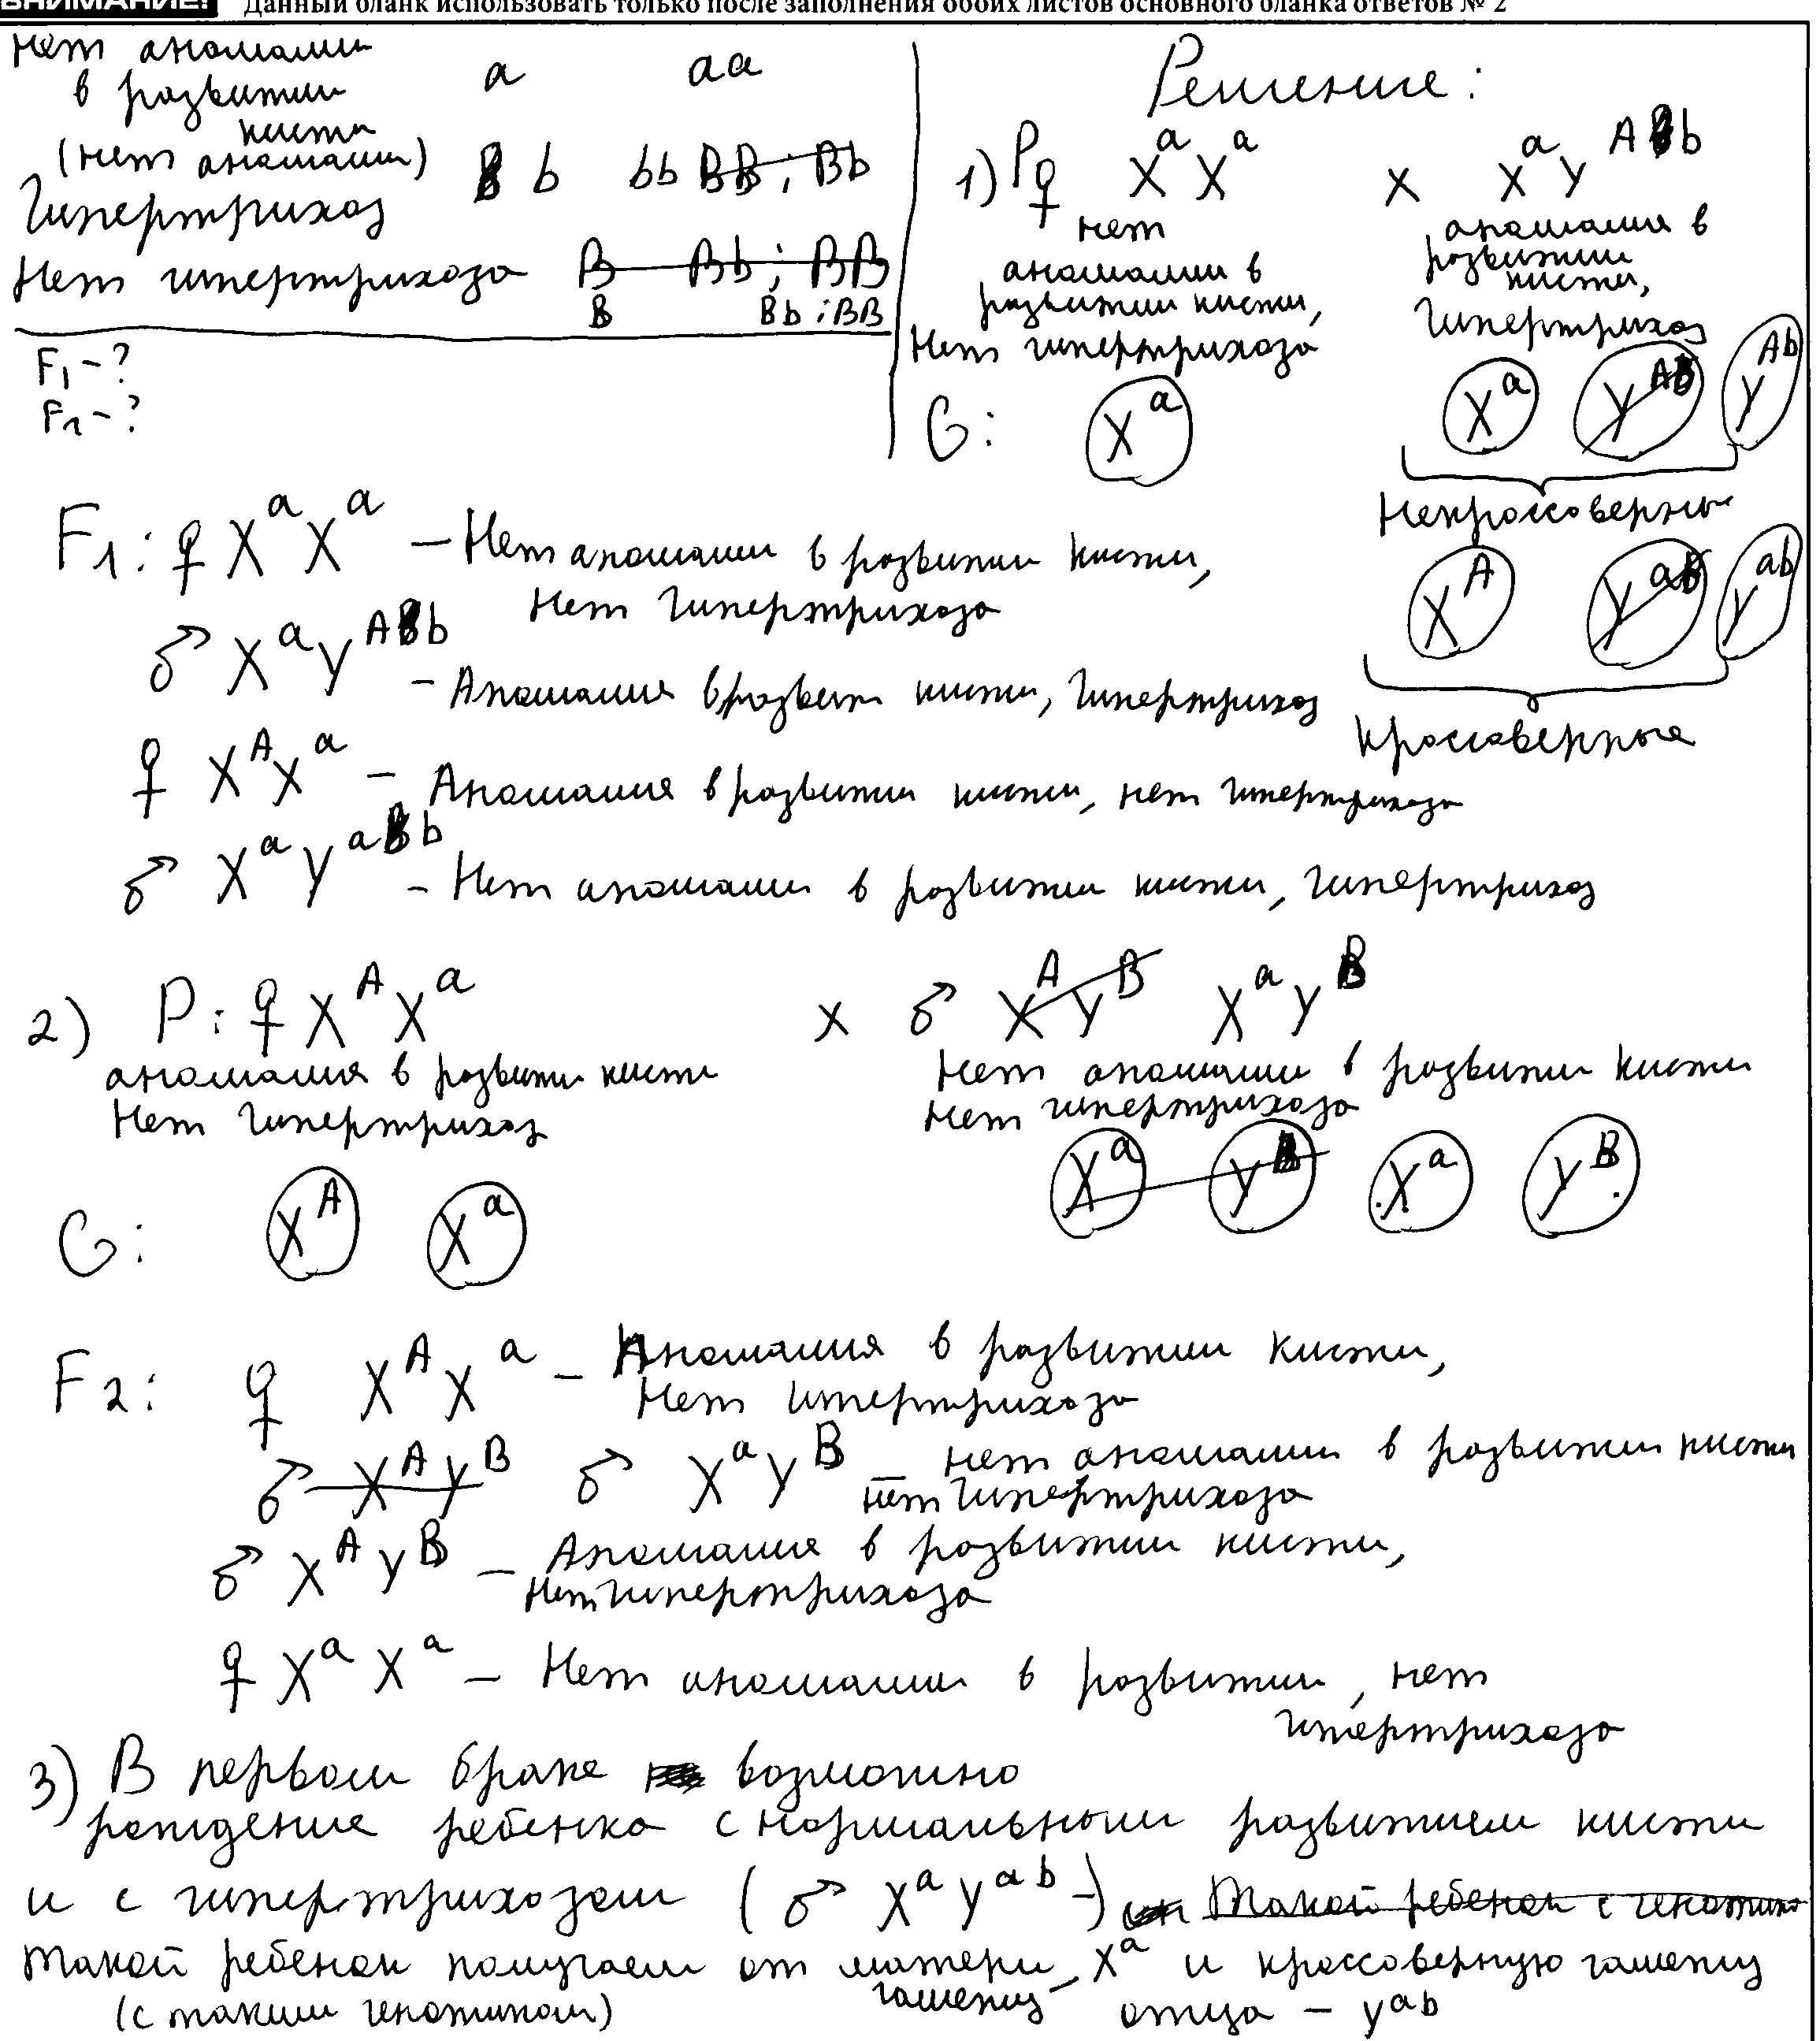 ВНИМАНИЕ! Данный бланк использовать только после заполнения обоих листов основного бланка ответов № 2
Нет аномалии
в развитии
кисти
(нет аномалии)
a aa
b bb BB; Bb
Гипертрихоз
Нет гипертрихоза B Bb; BB
B Bb; BB
F1 - ?
F2 - ?
Решение:
1) P ♀ XᵃXᵃ x XᵃYᴬᵇ
нет
аномалии в
развитии кисти,
Нет гипертрихоза
аномалия в
развитии
кисти,
Гипертрихоз
G: Xᵃ Xᵃ Yᴬᴮ Yᴬᵇ
Некроссоверные
Xᴬ Yᵃᴮ Yᵃᵇ
Кроссоверные
F1: ♀ XᵃXᵃ — Нет аномалии в развитии кисти,
Нет Гипертрихоза
♂ XᵃYᴬᵇ - Аномалия в развит кисти, Гипертрихоз
♀ XᴬXᵃ — Аномалия в развитии кисти, нет гипертрихоза
♂ XᵃYᵃᵇ - Нет аномалии в развитии кисти, гипертрихоз
2) P: ♀ XᴬXᵃ x ♂ XᴬYᴮ XᵃYᴮ
аномалия в развити кисти
Нет Гипертрихоз
Нет аномалии в развитии кисти
Нет гипертрихоза
G: Xᴬ Xᵃ Xᵃ Yᴮ Xᵃ Yᴮ
F2: ♀ XᴬXᵃ — Аномалия в развитии кисти,
Нет гипертрихоза
♂ XᴬYᴮ ♂ XᵃYᴮ — нет аномалии в развитии кисти
нет Гипертрихоза
♂ XᴬYᴮ — Аномалия в развитии кисти,
Нет гипертрихоза
♀ XᵃXᵃ — Нет аномалии в развитии, нет
гипертрихоза
3) В первом браке возможно
рождение ребенка с нормальным развитием кисти
и с гипертрихозом (♂ XᵃYᵃᵇ -) Такой ребенок с генотипо
Такой ребенок получает от матери гамету Xᵃ и кроссоверную гамету
(с таким генотипом) отца – Yᵃᵇ